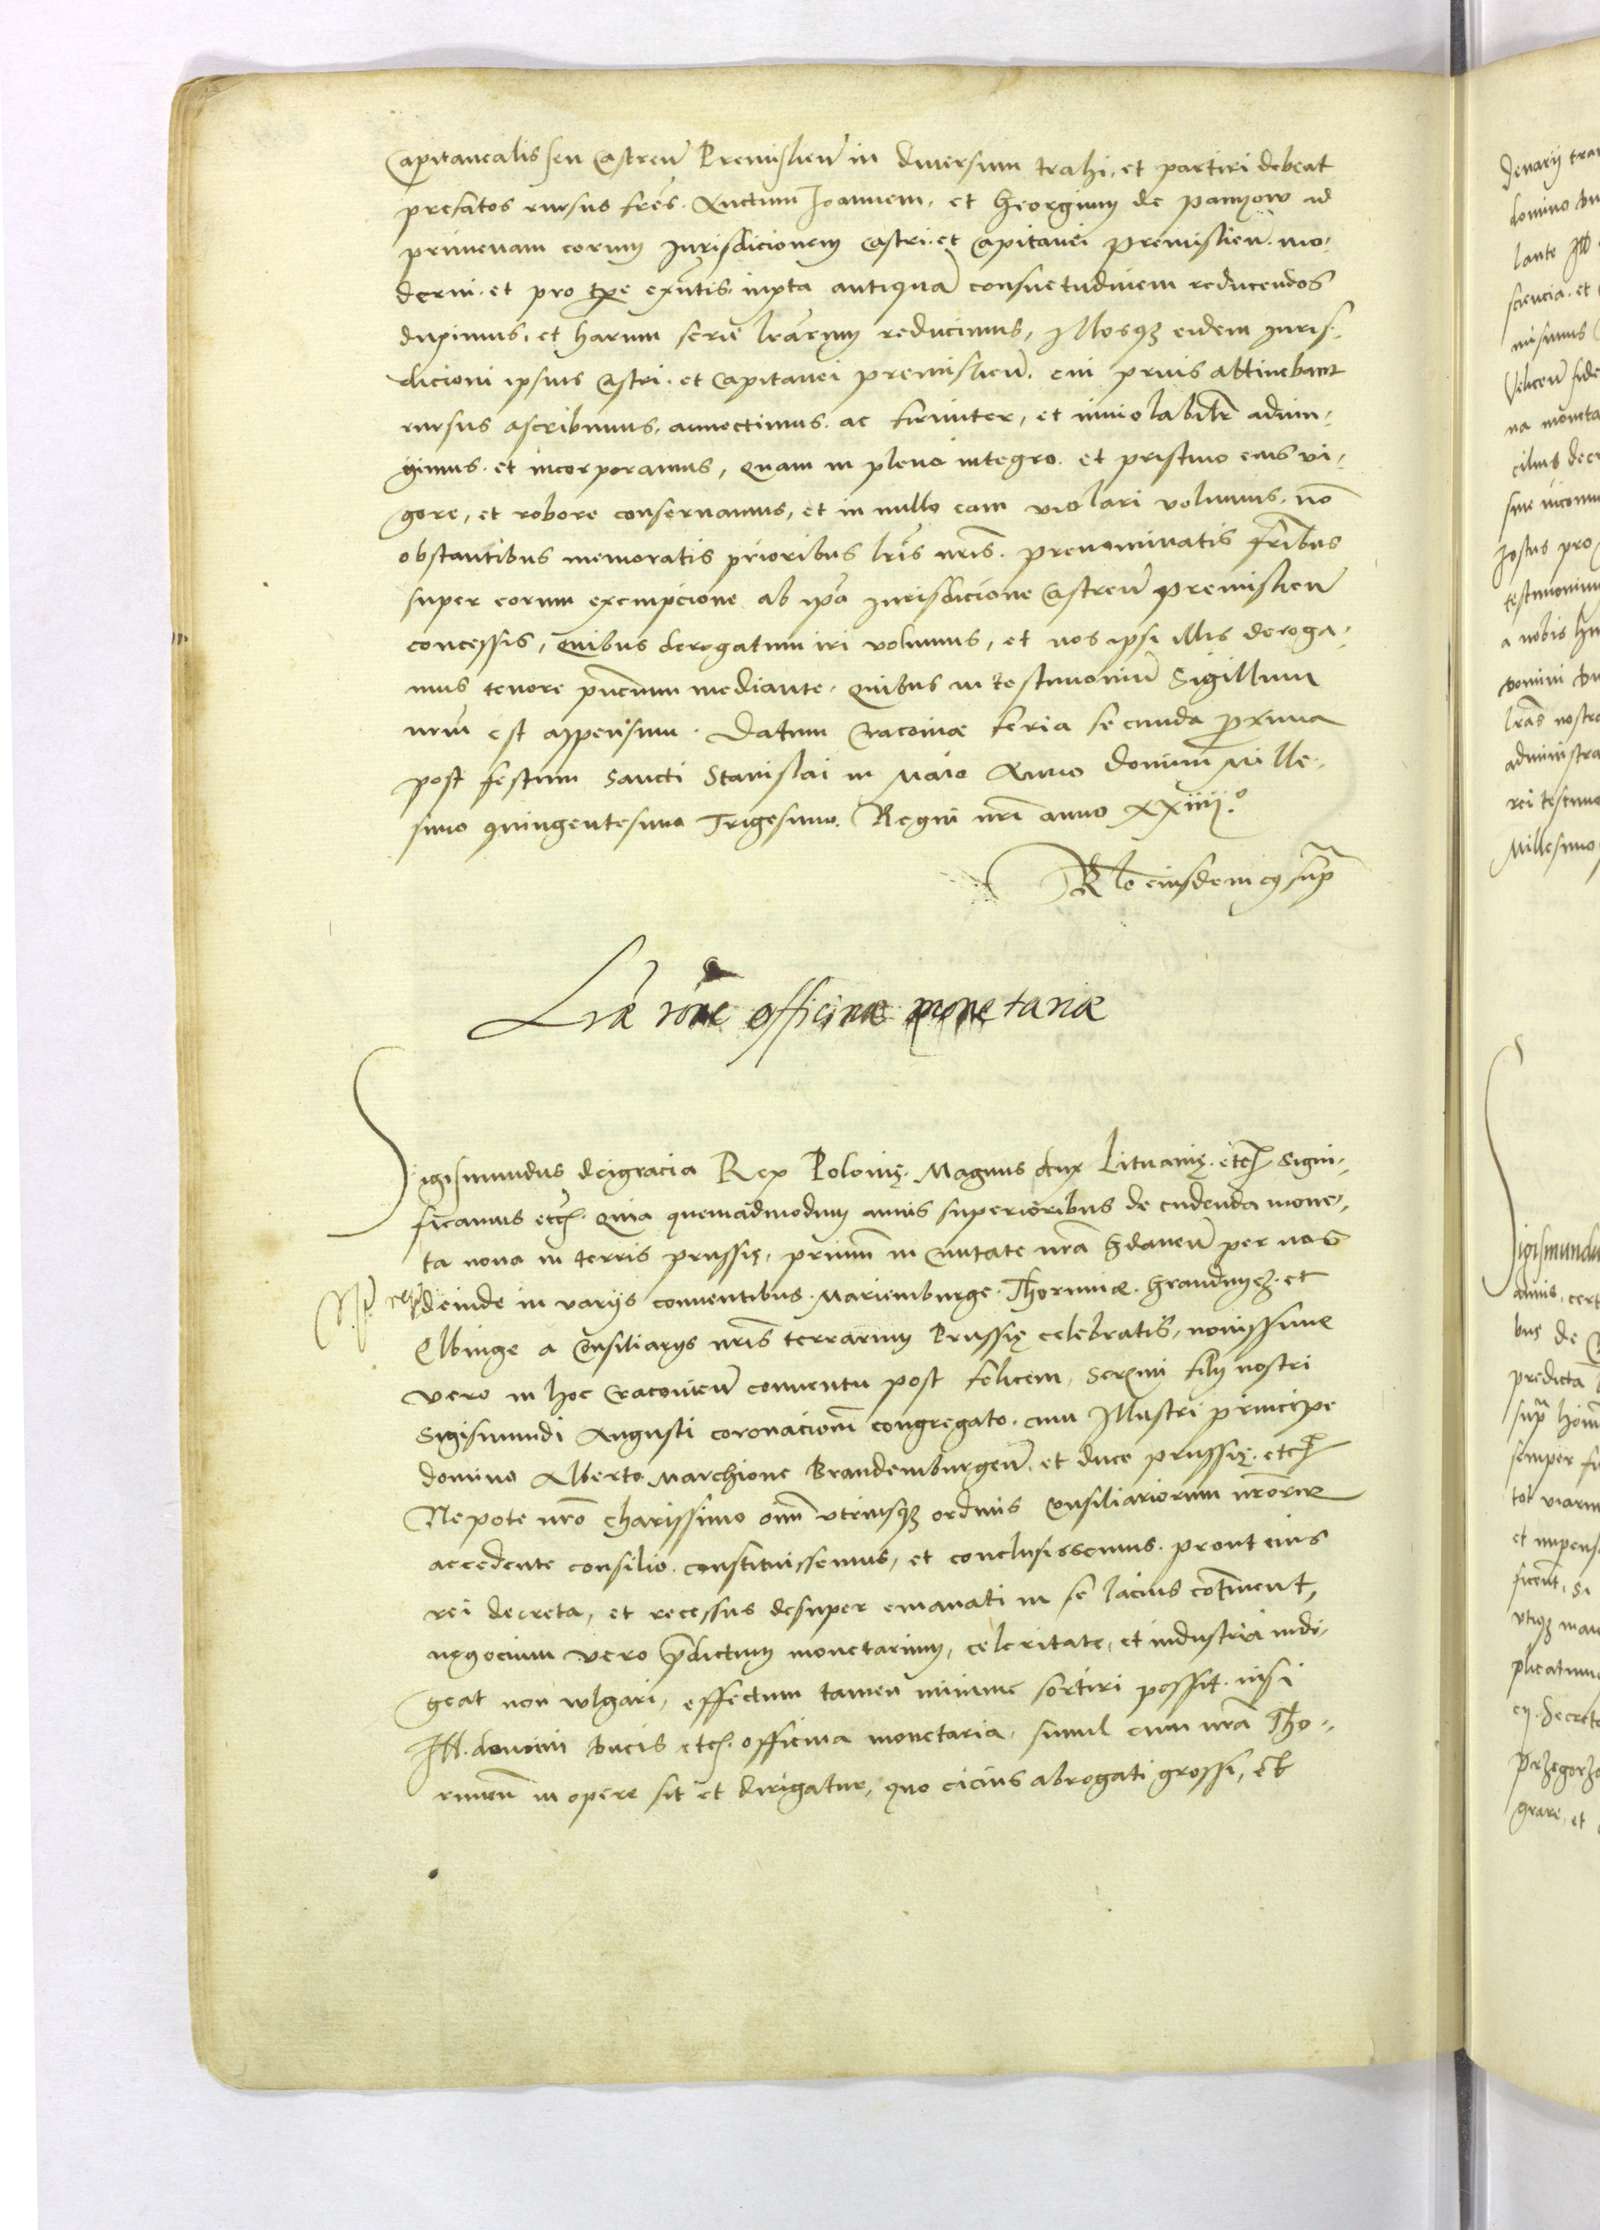 Capitanealis seu Castreñ Premislieñ in diuersum trahi, et partiri debeat
prefatos rursus frēs. Auctum Joannem, et Georgium de Pamyow ad
primeuam eorum Jurisdicionem Castri et Capitanei Premislieñ. mo-
derni. et pro tpe exñtis. iuxta antiquā consuetudinem reducendos
duximus, et harum serie lrarum reducimus, Illosqʒ eidem Juris-
dicioni ipsius Castri. et Capitanei Premislieñ. cui prius attinebant
rursus ascribimus, annectimus. ac firmiter, et inuiolabilr̄ adiun-
gimus. et incorporamus, quam in pleno integro. et pristino eius vi-
gore, et robore conseruamus, et in nullo eam violari volumus. nō
obstantibus memoratis prioribus lr̄is nr̄is. prenominatis fr̄ibus
super eorum exempcione ab ipā Jurisdicione Castreñ Premislieñ
concessis, Quibus derogatum iri volumus, et nos ipsi illis deroga-
mus tenore pn̄cium mediante. Quibus in testimoniū Sigillum
nr̄m est appensum. Datum Cracoviæ feria secunda proxima
post festum Sancti Stanislai in Maio Anno domini Mille-
simo quingentesimo Trigesimo. Regni nr̄i anno XXiiij.º
Rlo eiusdem q sup̄
Lr̄æ rōne officinæ monetariæ
Sigismundus deigracia Rex Polonię. Magnus dux Lituanię. etcʒ Signi-
ficamus etcʒ. Quia quemadmodum annis superioribus de cudenda mone-
ta noua in terris Prussię, primum in Ciuitate nrā Gdaneñ per nos
deinde in varijs conuentibus. Mariemburge. Thoruniæ. Graudnyecʒ. et
Elbinge a Consiliarijs nr̄is terrarum Prussię celebratis, nouissime
vero in hoc Cracouieñ conuentu post felicem, Serᵐⁱ filij nostri
Sigismundi Augusti coronacionē congregato. cum Illustri principe
domino Alberto Marchione Brandemburgeñ. et duce Prussię. etcʒ
Nepote nr̄o Charissimo om̄ vtriusqʒ ordinis Consiliariorum nr̄orum
accedente consilio. constituissemus, et conclusissemus. prout eius
rei decreta, et recessus desuper emanati in se lacius cōtinent,
negocium vero p̄dictum monetarium, celeritate, et industria indi-
geat non vulgari, effectum tamen minime sortiri possit. nisi
Ill. domini Ducis etcʒ. officina monetaria, simul cum nrā Tho-
runeñ in opere sit et dirigatur, quo cicius abrogati grossi, et